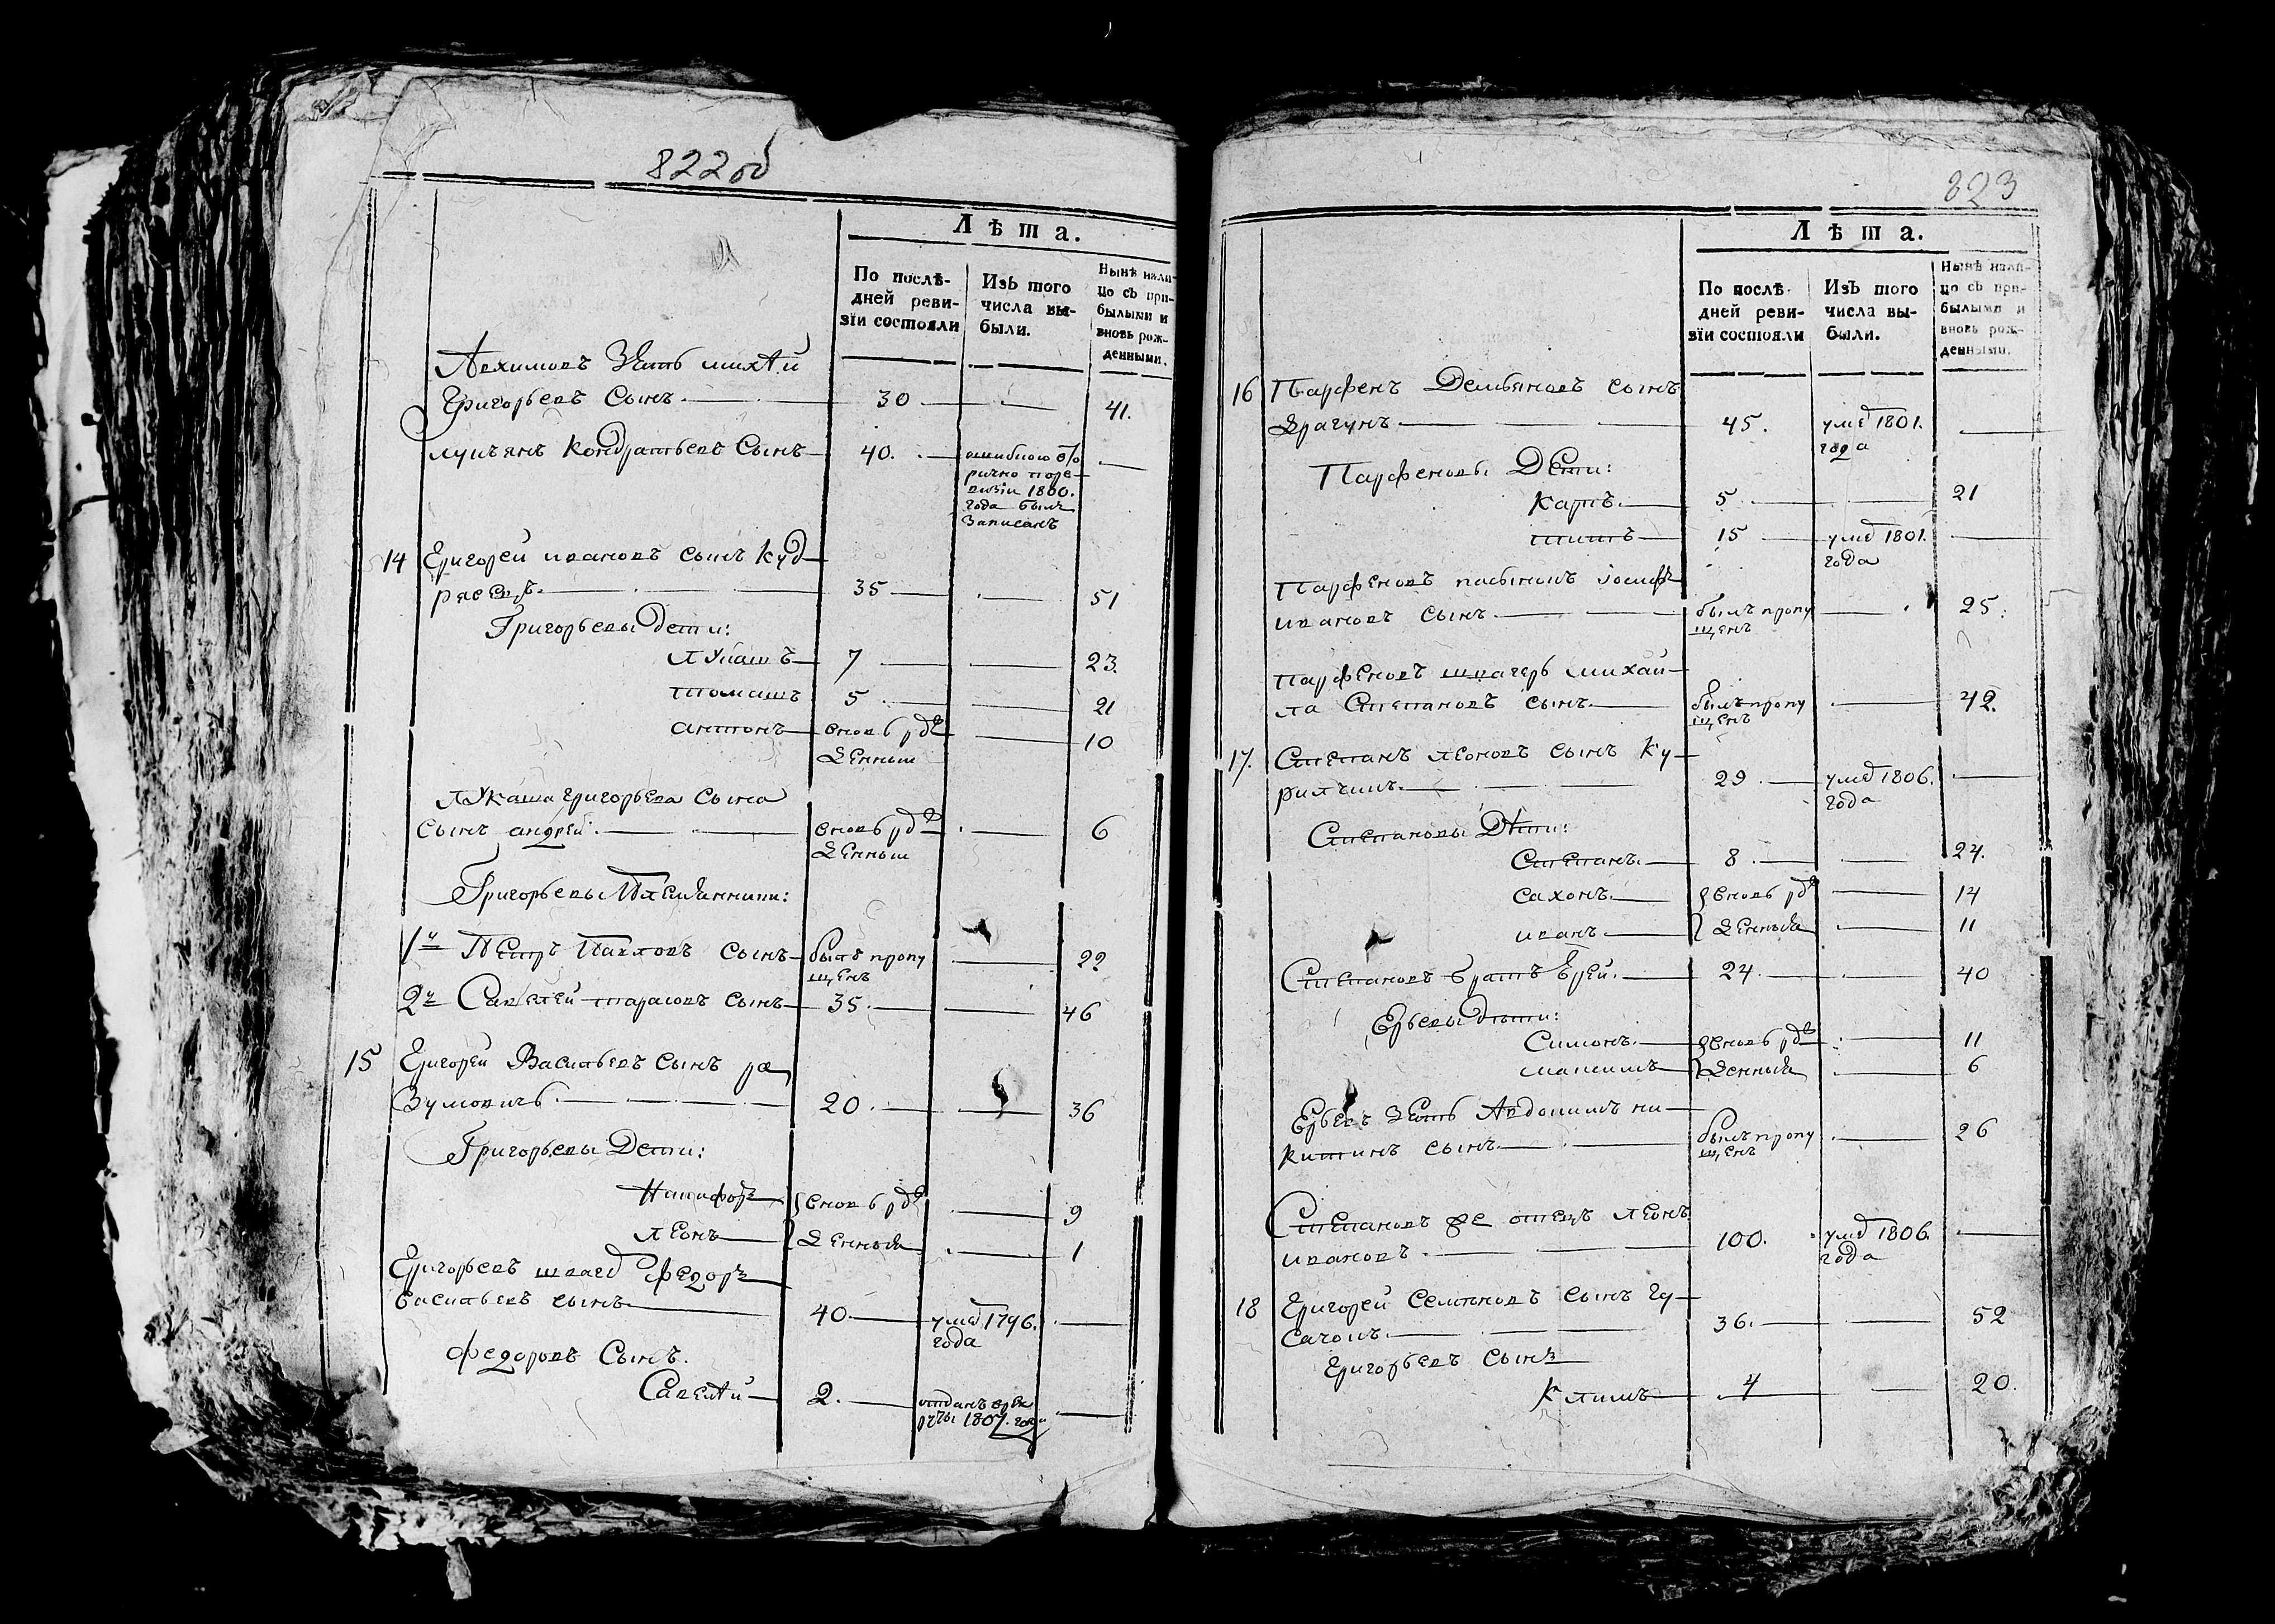 822об
Лѣта.
По послѣ-
дней реви-
зіи состояли
Изъ того
числа вы-
были.
Нынѣ нали-
цо съ при-
былыми и
вновь рож-
денными.
зять
Григорьевъ Сынъ 30 41.
лукъянъ Кондратьевъ Сынъ 40.
ошибкою
по ре-
визіи 1800.
года былъ
Записанъ
14 Григорей ивановъ сынъ Куд-
35 51
Григорьевы дети:
лукашъ 7 23.
томашъ 5 21
антонъ вновь рож
денный 10
лукаша григорьева сына
сынъ андрей вновь рож 6
денный
Григорьевы Племянники:
1й Петръ Павловъ сынъ былъ пропу 22
щенъ
2й Савелей тарасовъ сынъ 35. 46
15 Григорей Васильевъ сынъ ра
зумовичь 20. 36
Григорьевы Дети:
вновь рож 9
леонъ денныя 1
Григорьевъ федоръ
васильевъ сынъ 40. умре 1796.
года
федоровъ Сынъ.
Савелѣй 2. отданъ врек
руты 1807. года
823
Лѣта.
По послѣ-
дней реви-
зіи состояли
Изъ того
числа вы-
были.
Нынѣ нали-
цо съ при-
былыми и
вновь рож-
денными.
16 Парфенъ Демьяновъ сынъ
Драгунъ 45. умре 1801.
года
Парфеновы Дети:
Карпъ 5 21
титъ 15 умре 1801.
года
Парфеновъ пасынокъ іосифъ
ивановъ сынъ былъ пропу 25.
щенъ
парфеновъ швагеръ михай-
ла Степановъ сынъ былъ пропу 42.
щенъ
17. Степанъ леоновъ сынъ Ку-
29 умре 1806.
года
Степановы Дѣти:
Степанъ 8 24.
сахонъ вновь рож 14
иванъ денныя 11
Степановъ братъ Ерей 24 40
Ерьевы дѣти:
Симонъ вновь рож 11
максимъ денныя 6
Ерьевъ зять Авдокимъ ни-
китинъ сынъ былъ пропу 26
щенъ
Степановъ же отецъ леонъ
ивановъ 100. умре 1806.
года
18 Григорей Семеновъ сынъ Гу-
сачокъ 36. 52
Григорьевъ сынъ
Климъ 4 20.